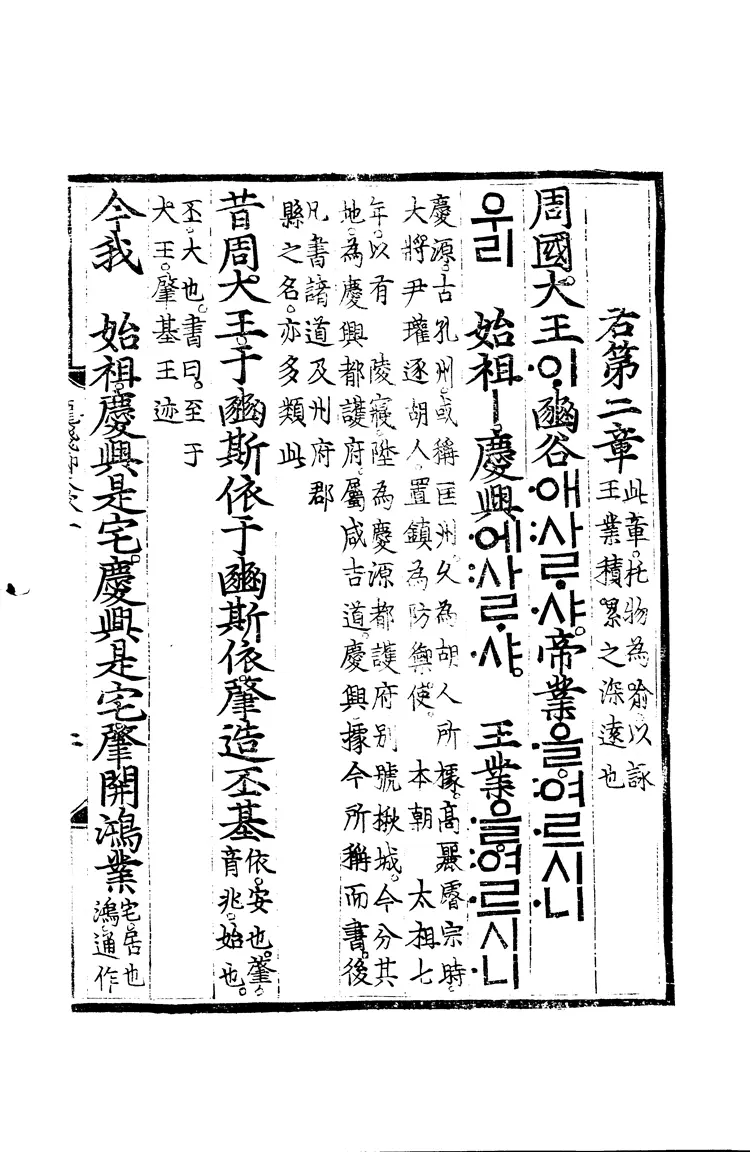 右第二章
此章。托物為喻。以詠
王業積累之深遠也
周國大王이。豳谷애사ᄅᆞ샤。帝業을。여르시니
우리 始祖ㅣ慶興에사ᄅᆞ샤。 王業을。여르시니
慶源。古孔州。或稱匡州。久為胡人所據。高麗睿宗時。
大將尹瓘逐胡人。置鎮為防禦使。 本朝 太祖七
年。以有 陵寢。陞為慶源都護府。別號楸城。今分其
地。為慶興都護府。屬咸吉道。慶興據今所稱而書。後
凡書諸道及州府郡
縣之名。亦多類此
昔周大王。于豳斯依。于豳斯依。肇造丕基
依。安也。肇。
音兆。始也。
丕。大也。書曰。至于
大王。肇基王迹
今我 始祖。慶興是宅。慶興是宅。肇開鴻業
宅。居也
鴻。通作